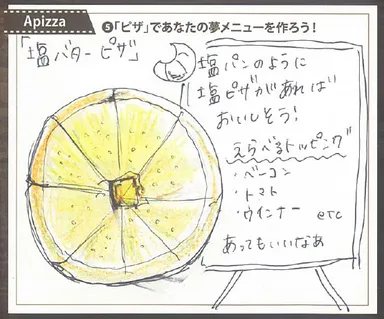 Apizza
❺「ピザ」であなたの夢メニューを作ろう！
「塩バターピザ」
塩パンのように
塩ピザがあれば
おいしそう！
えらべるトッピング
・ベーコン
・トマト
・ウインナー etc
あってもいいなあ